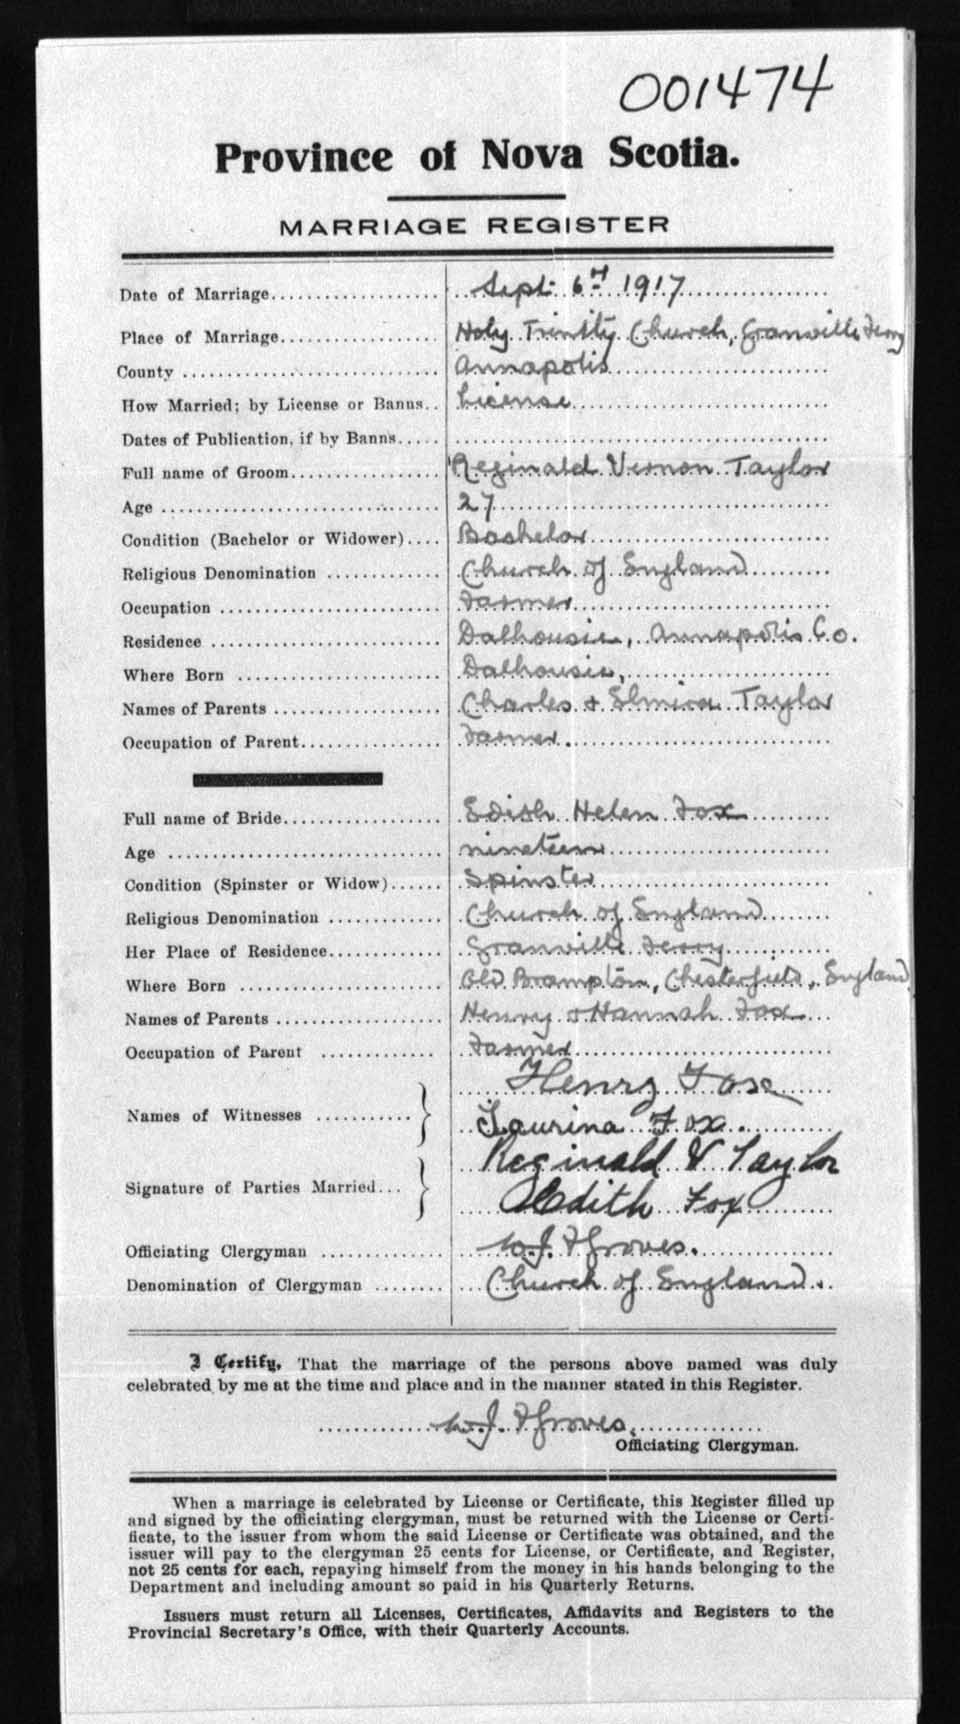 001474
Province of Nova Scotia.
MARRIAGE REGISTER
Date of Marriage.................... Sept. 6th 1917
Place of Marriage................... Holy Trinity Church, Granville Ferry
County ............................. Annapolis
How Married; by License or Banns.. License
Dates of Publication, if by Banns.....
Full name of Groom................. Reginald Vernon Taylor
Age ................................ 27
Condition (Bachelor or Widower).... Bachelor
Religious Denomination ............. Church of England
Occupation ......................... Farmer
Residence .......................... Dalhousie, Annapolis Co.
Where Born ........................ Dalhousie,
Names of Parents .................. Charles & Elmira Taylor
Occupation of Parent................ Farmer.
Full name of Bride.................. Edith Helen Fox
Age ................................ nineteen
Condition (Spinster or Widow)...... Spinster
Religious Denomination ............. Church of England
Her Place of Residence............. Granville Ferry
Where Born ........................ Old Brampton, Chesterfield, England
Names of Parents .................. Henry & Hannah Fox
Occupation of Parent ............. Farmer
Henry Fox
Names of Witnesses ...........
Laurina Fox.
Reginald V Taylor
Signature of Parties Married...
Edith Fox
Officiating Clergyman .............. W. J. Groves.
Denomination of Clergyman ........ Church of England.
I Certify, That the marriage of the persons above named was duly
celebrated by me at the time and place and in the manner stated in this Register.
W. J. Groves,
Officiating Clergyman.
When a marriage is celebrated by License or Certificate, this Register filled up
and signed by the officiating clergyman, must be returned with the License or Certi-
ficate, to the issuer from whom the said License or Certificate was obtained, and the
issuer will pay to the clergyman 25 cents for License, or Certificate, and Register,
not 25 cents for each, repaying himself from the money in his hands belonging to the
Department and including amount so paid in his Quarterly Returns.
Issuers must return all Licenses, Certificates, Affidavits and Registers to the
Provincial Secretary's Office, with their Quarterly Accounts.